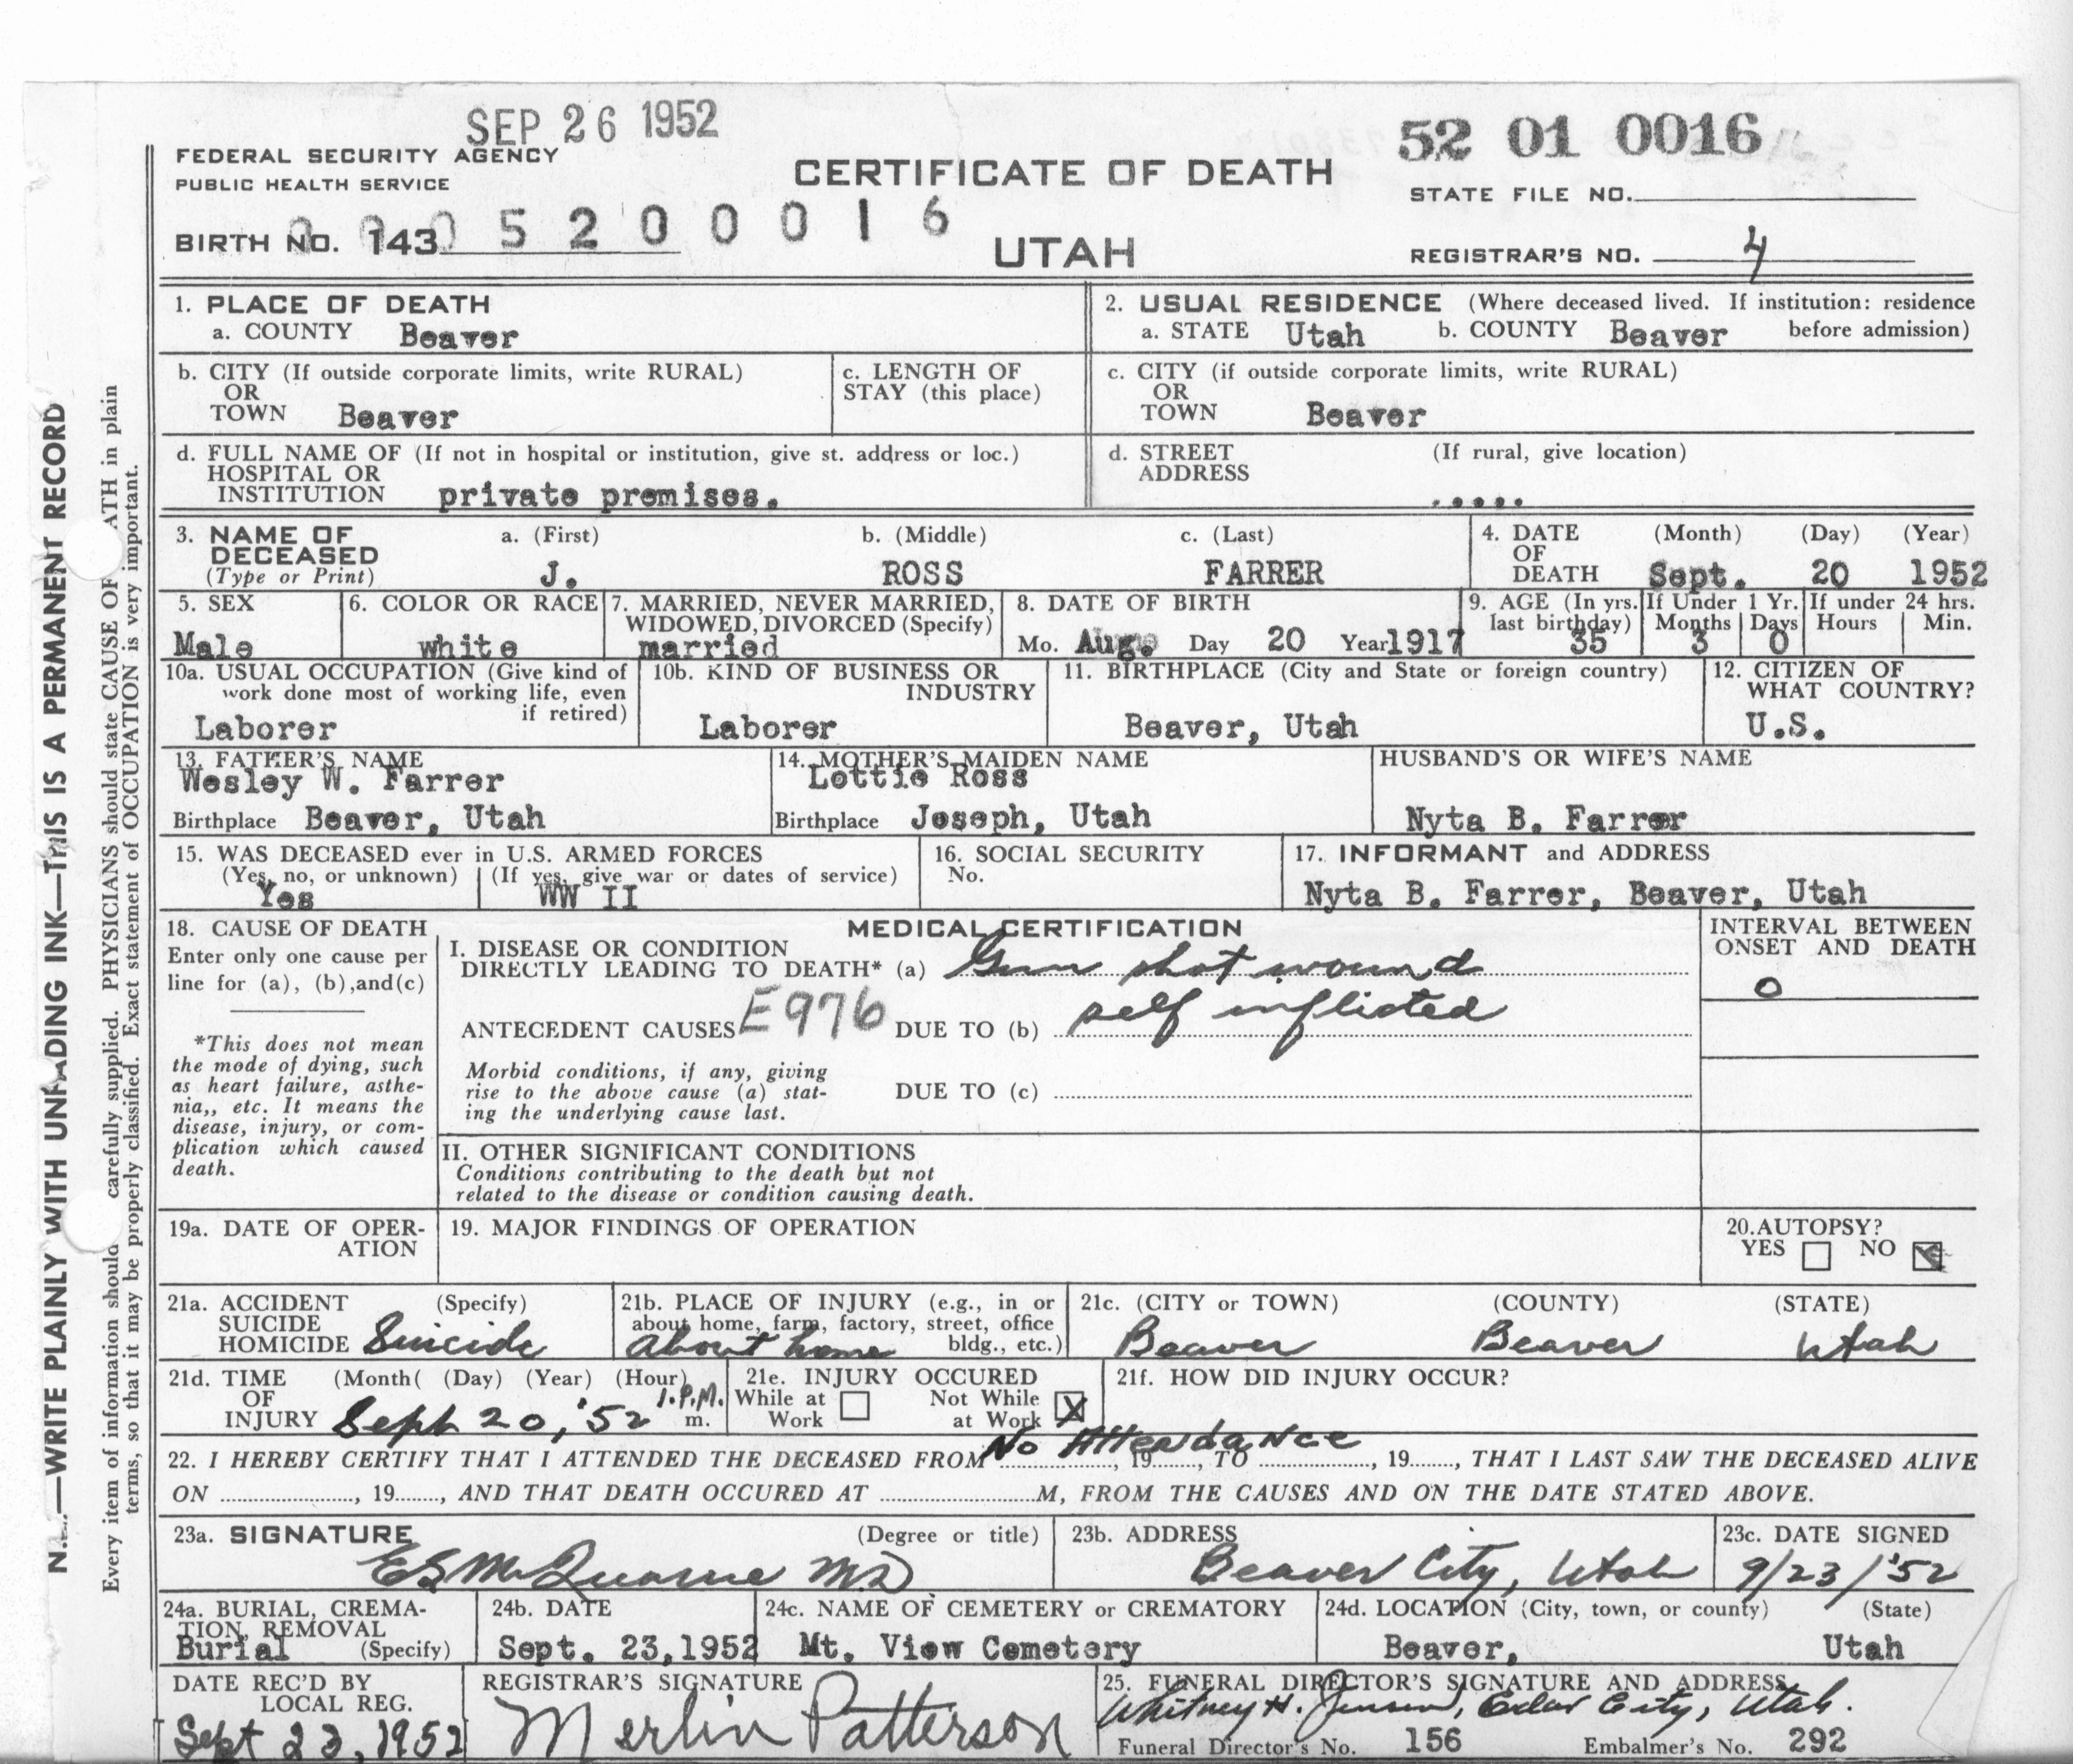 SEP 26 1952
52 01 0016
FEDERAL SECURITY AGENCY
PUBLIC HEALTH SERVICE
CERTIFICATE OF DEATH
STATE FILE NO.
BIRTH NO. 143
5 2 0 0 0 1 6
UTAH
REGISTRAR'S NO. 4
1. PLACE OF DEATH
a. COUNTY Beaver
2. USUAL RESIDENCE (Where deceased lived. If institution: residence
a. STATE Utah b. COUNTY Beaver before admission)
b. CITY (If outside corporate limits, write RURAL)
OR
TOWN Beaver
c. LENGTH OF
STAY (this place)
c. CITY (if outside corporate limits, write RURAL)
OR
TOWN Beaver
d. FULL NAME OF (If not in hospital or institution, give st. address or loc.)
HOSPITAL OR
INSTITUTION private premises.
d. STREET (If rural, give location)
ADDRESS
.....
3. NAME OF a. (First) b. (Middle) c. (Last)
DECEASED
(Type or Print) J. ROSS FARRER
4. DATE (Month) (Day) (Year)
OF
DEATH Sept. 20 1952
5. SEX
Male
6. COLOR OR RACE
white
7. MARRIED, NEVER MARRIED,
WIDOWED, DIVORCED (Specify)
married
8. DATE OF BIRTH
Mo. Aug. Day 20 Year 1917
9. AGE (In yrs.
last birthday)
35
If Under 1 Yr.
Months Days
3 0
If under 24 hrs.
Hours Min.
10a. USUAL OCCUPATION (Give kind of
work done most of working life, even
if retired)
Laborer
10b. KIND OF BUSINESS OR
INDUSTRY
Laborer
11. BIRTHPLACE (City and State or foreign country)
Beaver, Utah
12. CITIZEN OF
WHAT COUNTRY?
U.S.
13. FATHER'S NAME
Wesley W. Farrer
Birthplace Beaver, Utah
14. MOTHER'S MAIDEN NAME
Lottie Ross
Birthplace Joseph, Utah
HUSBAND'S OR WIFE'S NAME
Nyta B. Farrer
15. WAS DECEASED ever in U.S. ARMED FORCES
(Yes, no, or unknown) (If yes, give war or dates of service)
Yes WW II
16. SOCIAL SECURITY
No.
17. INFORMANT and ADDRESS
Nyta B. Farrer, Beaver, Utah
18. CAUSE OF DEATH
Enter only one cause per
line for (a), (b),and(c)
*This does not mean
the mode of dying, such
as heart failure, asthe-
nia,, etc. It means the
disease, injury, or com-
plication which caused
death.
MEDICAL CERTIFICATION
I. DISEASE OR CONDITION
DIRECTLY LEADING TO DEATH* (a) Gun shot wound
ANTECEDENT CAUSES E976 DUE TO (b) self inflicted
Morbid conditions, if any, giving
rise to the above cause (a) stat-
ing the underlying cause last.
DUE TO (c)
INTERVAL BETWEEN
ONSET AND DEATH
0
II. OTHER SIGNIFICANT CONDITIONS
Conditions contributing to the death but not
related to the disease or condition causing death.
19a. DATE OF OPER-
ATION
19. MAJOR FINDINGS OF OPERATION
20.AUTOPSY?
YES NO
21a. ACCIDENT (Specify)
SUICIDE
HOMICIDE Suicide
21b. PLACE OF INJURY (e.g., in or
about home, farm, factory, street, office
bldg., etc.)
About home
21c. (CITY or TOWN) (COUNTY) (STATE)
Beaver Beaver Utah
21d. TIME (Month( (Day) (Year) (Hour)
OF
INJURY Sept 20, '52 1.P.M. m.
21e. INJURY OCCURED
While at Work
Not While at Work X
21f. HOW DID INJURY OCCUR?
No Attendance
22. I HEREBY CERTIFY THAT I ATTENDED THE DECEASED FROM ..., 19..., TO ..., 19..., THAT I LAST SAW THE DECEASED ALIVE
ON ..., 19..., AND THAT DEATH OCCURED AT ...M, FROM THE CAUSES AND ON THE DATE STATED ABOVE.
23a. SIGNATURE (Degree or title)
MD
23b. ADDRESS
Beaver City, Utah
23c. DATE SIGNED
9/23/'52
24a. BURIAL, CREMA-
TION, REMOVAL
Burial (Specify)
24b. DATE
Sept. 23,1952
24c. NAME OF CEMETERY or CREMATORY
Mt. View Cemetery
24d. LOCATION (City, town, or county) (State)
Beaver, Utah
DATE REC'D BY
LOCAL REG.
Sept 23, 1952
REGISTRAR'S SIGNATURE
Merlin Patterson
25. FUNERAL DIRECTOR'S SIGNATURE AND ADDRESS
Whitney H. Jensen, Cedar City, Utah.
Funeral Director's No. 156 Embalmer's No. 292
WRITE PLAINLY WITH UNFADING INK—THIS IS A PERMANENT RECORD
Every item of information should carefully supplied. PHYSICIANS should state CAUSE OF ATH in plain
terms, so that it may be properly classified. Exact statement of OCCUPATION is very important.